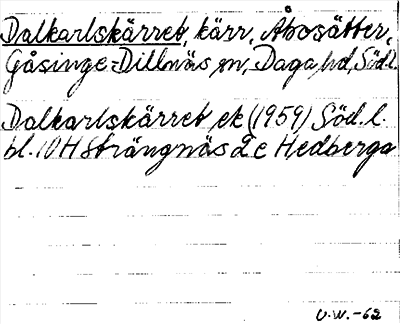 Dalkarlskärret, kärr, Åbosätter,
Gåsinge-Dillnäs sn, Daga hd, Södl.
Dalkarlskärret ek (1959) Söd. l.
bl. 10 H Strängnäs 2 e Hedberga
U.W.-62